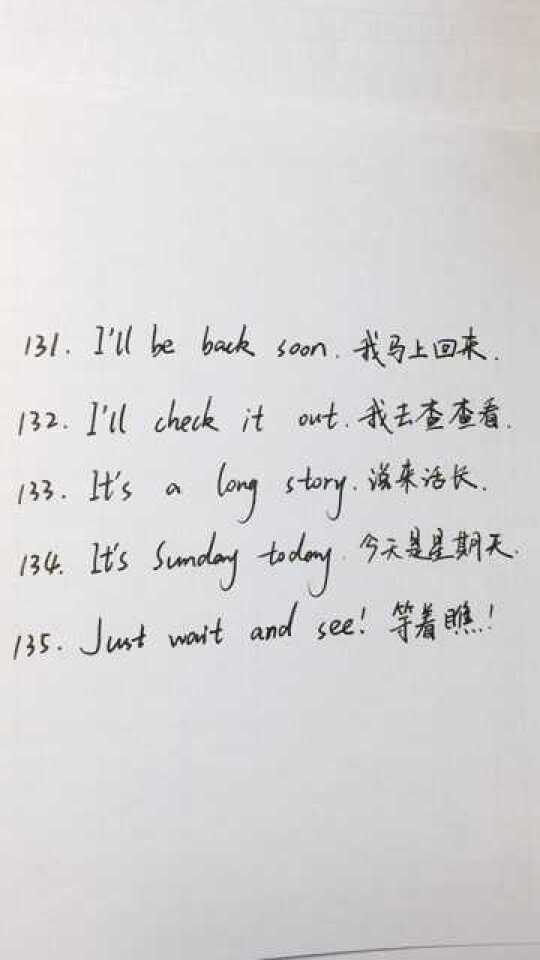 131. I'll be back soon. 我马上回来.
132. I'll check it out. 我去查查看.
133. It's a long story. 说来话长.
134. It's Sunday today. 今天是星期天.
135. Just wait and see! 等着瞧!